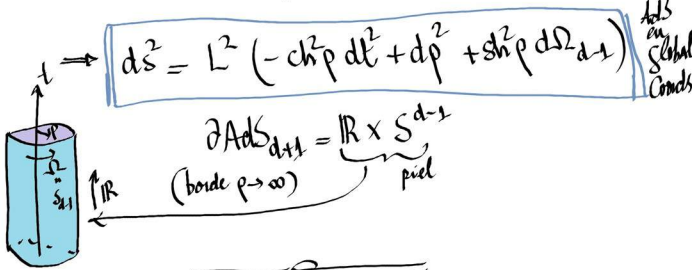 ⇒ ds² = L² (-ch²ρ dt² + dρ² + sh²ρ dΩ_{d-1})
AdS
en
Global
Coords
t
ρ
Ω
=
S_{d-1}
↑ℝ
∂AdS_{d+1} = ℝ × S^{d-1}
(borde ρ→∞)
piel